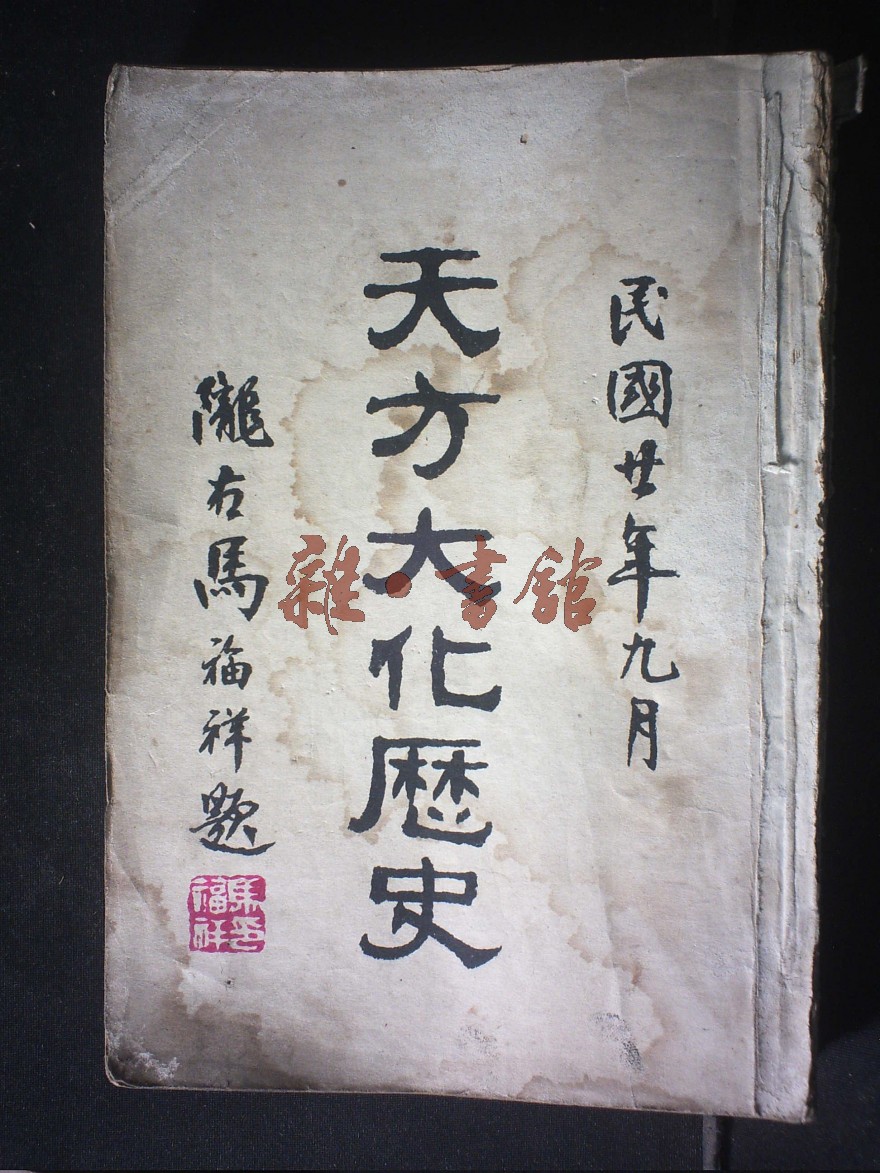 民國廿年九月
天方大化歷史
隴右馬福祥題
馬福祥印
雜·書館